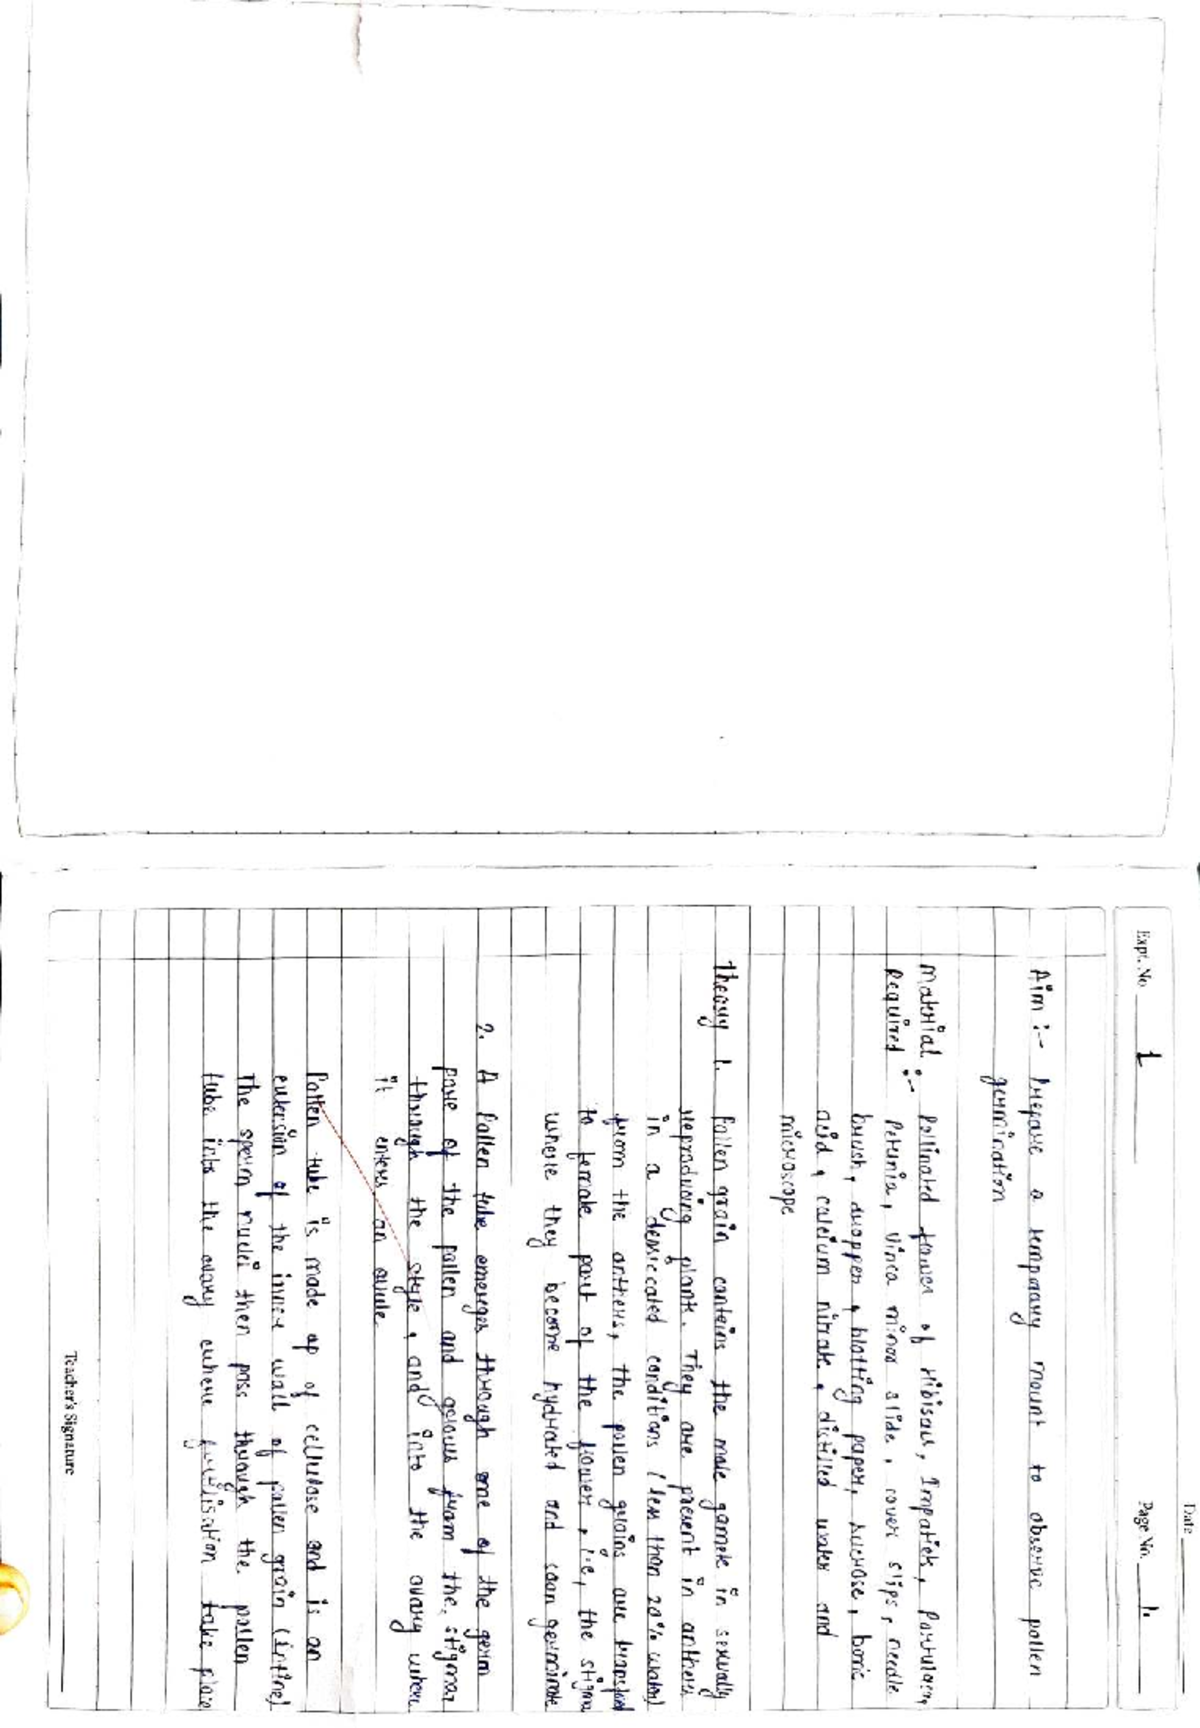 Date
Expt. No. 1
Page No. 1.
Aim :- Prepare a temporary mount to observe pollen
germination
Material :- Pollinated flower of Hibiscus, Impatiek, Portulaca,
Required :- Petunia, Vinca minor slide, cover slips, needle
brush, dropper, blotting paper, sucrose, boric
acid, calcium nitrate, distilled water and
microscope
Theory 1. Pollen grain contains the male gamete in sexually
reproducing plants. They are present in anthers
in a desiccated conditions (less than 20% water)
from the anthers, the pollen grains are
to female part of the flower, i.e, the stigma
where they become hydrated and soon germinate
2. A Pollen tube emerges through one of the germ
pore of the pollen and grows from the, stigma
through the style, and into the ovary where
it enters an ovule
Pollen tube is made up of cellulose and is an
extersion of the inner wall of pollen grain (intine)
The sperm nuclei then pass through the pollen
tube into the ovary where fertilisation take place
Teacher's Signature